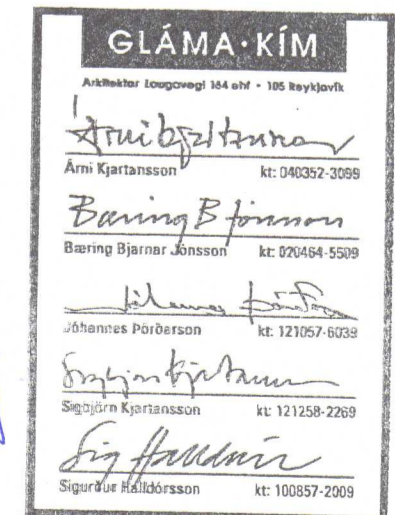 GLÁMA·KÍM
Arkitektar Laugavegi 164 ehf • 105 Reykjavík
Árni Kjartansson
Árni Kjartansson kt: 040352-3099
Bæring B Jónsson
Bæring Bjarnar Jónsson kt: 020464-5509
Jóhannes Þórðarson
Jóhannes Þórðarson kt: 121057-6039
Sigbjörn Kjartansson
Sigbjörn Kjartansson kt: 121258-2269
Sig Halldórs
Sigurður Halldórsson kt: 100857-2009